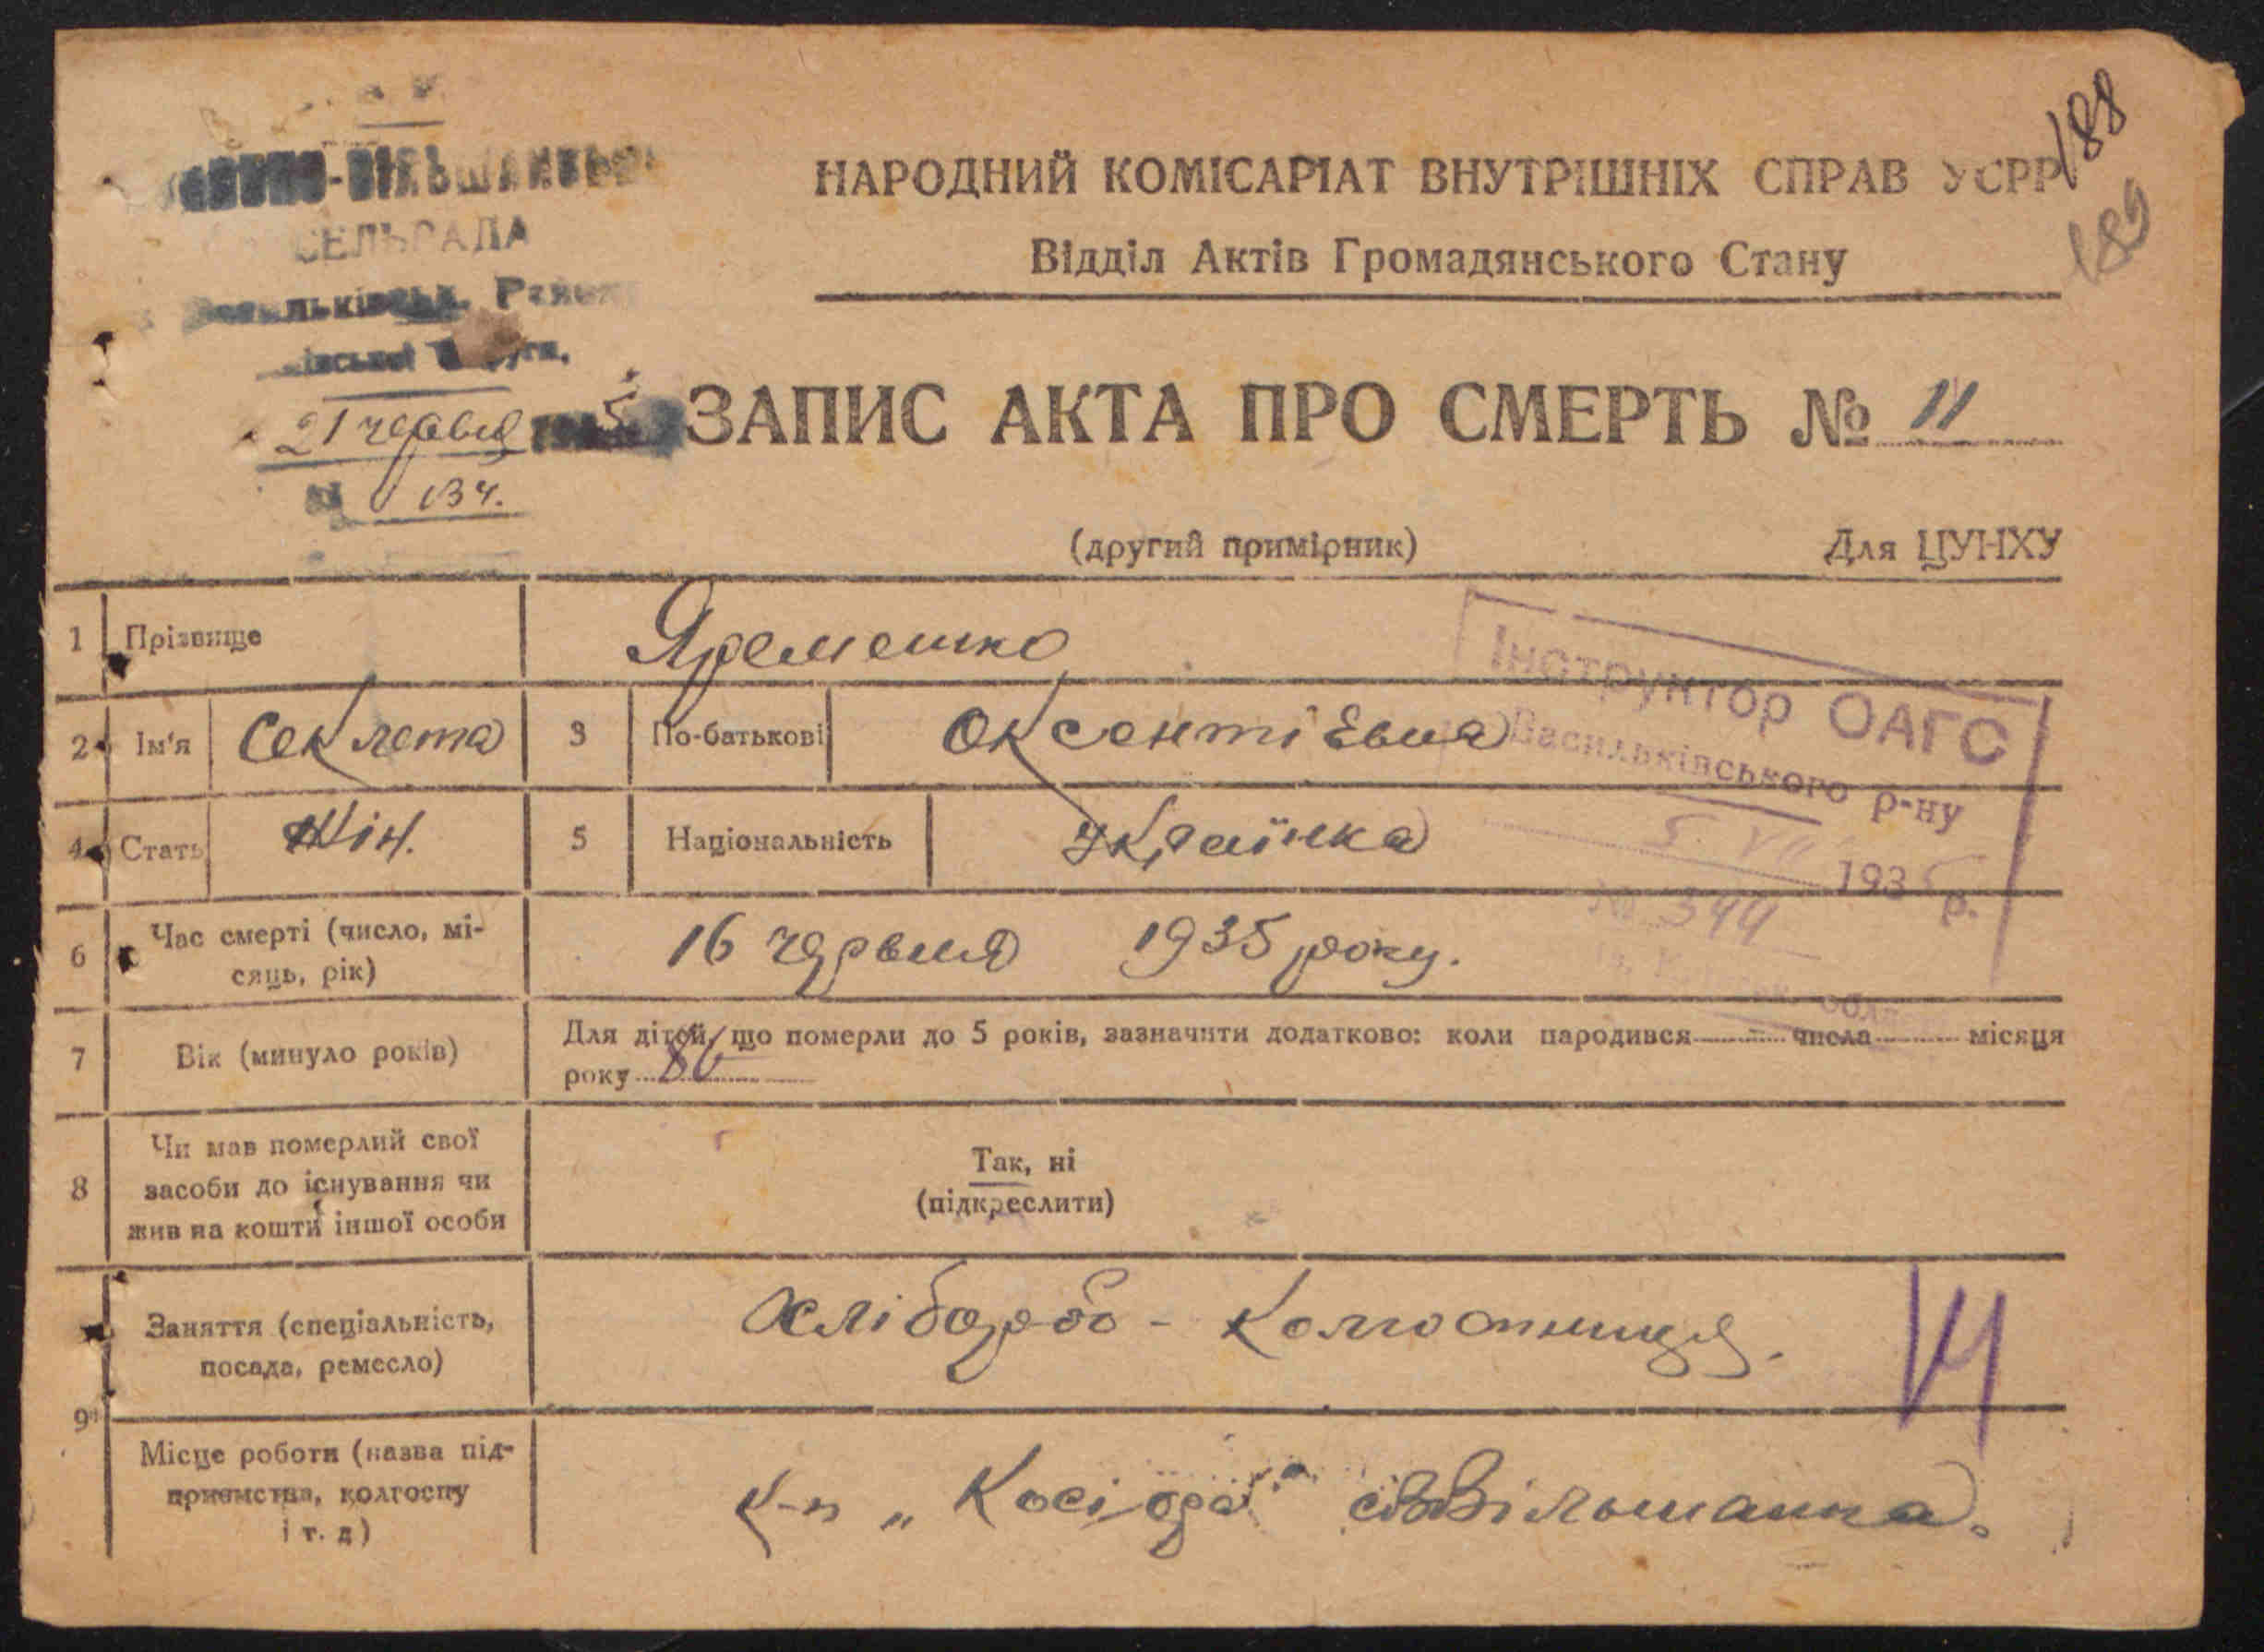 188
189
СЕЛЬРАДА
21 червня 5
134.
НАРОДНИЙ КОМІСАРІАТ ВНУТРІШНІХ СПРАВ УСРР
Відділ Актів Громадянського Стану
ЗАПИС АКТА ПРО СМЕРТЬ № 11
(другий примірник) Для ЦУНХУ
1 Прізвище Яременко
Інструктор ОАГС
Васильківського р-ну
5. VII 1935 р.
№ 344
2 Ім'я Секлета 3 По-батькові Оксентіевна
4 Стать Жін. 5 Національність Українка
6 Час смерті (число, мі-
сяць, рік) 16 червня 1935 року.
7 Вік (минуло років) Для дітей, що померли до 5 років, зазначити додатково: коли народився числа місяця
року 86
8 Чи мав померлий свої
засоби до існування чи
жив на кошти іншої особи
Так, ні
(підкреслити)
9 Заняття (спеціальність,
посада, ремесло) Хлібороб - колгоспниця.
Місце роботи (назва під-
приємства, колгоспу
і т. д) „Косіора"